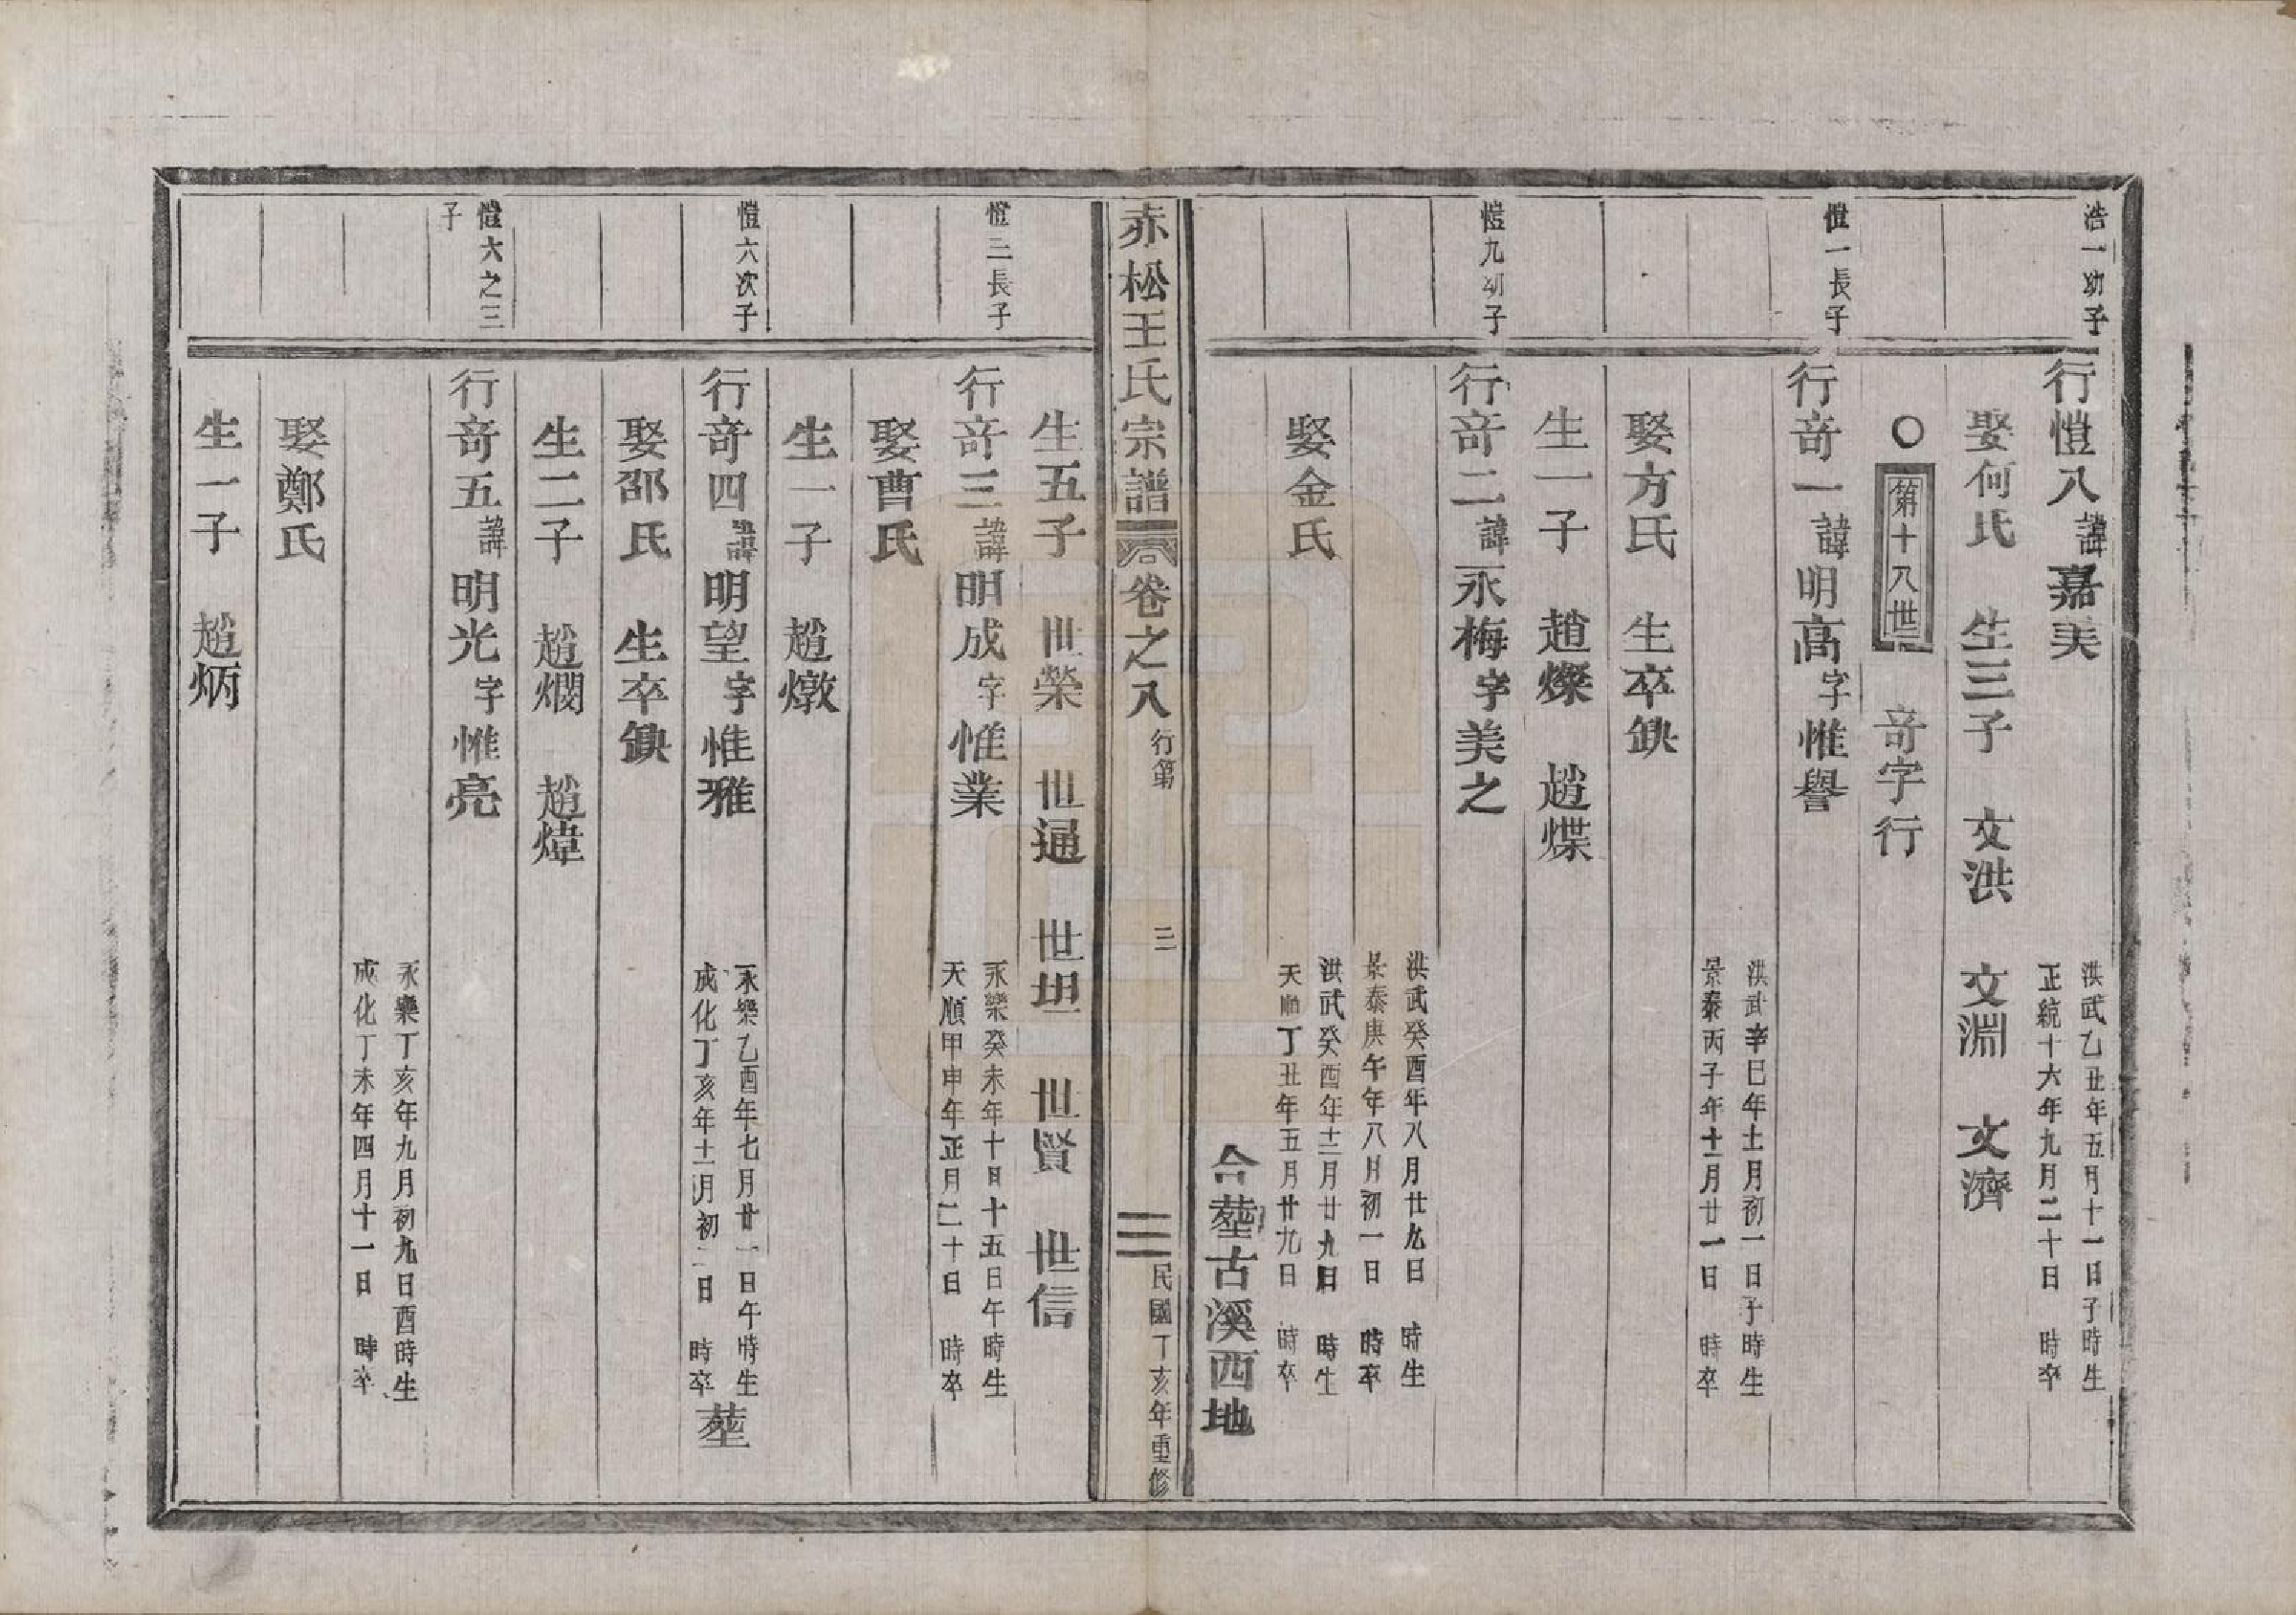 浩一幼子
行愷八諱嘉美
洪武乙丑年五月十一日子時生
正統十六年九月二十日　時卒
娶何氏　生三子　文洪　文淵　文濟
〇第十八世　竒字行
愷一長子
行竒一諱明高字惟譽
洪武辛巳年十一月初一日子時生
景泰丙子年十二月廿一日　時卒
娶方氏　生卒缺
生一子　趙燦　趙煠
愷九幼子
行竒二諱永梅字美之
洪武癸酉年八月廿九日　時生
景泰庚午年八月初一日　時卒
娶金氏
洪武癸酉年十二月廿九日　時生
天順丁丑年五月廿九日　時卒
合塟古溪西地
赤松王氏宗譜　卷之八　行第　三　民國丁亥年重修
生五子　世榮　世通　世坦　世賢　世信
愷三長子
行竒三諱明成字惟業
永樂癸未年十月十五日午時生
天順甲申年正月二十日　時卒
娶曹氏
生一子　趙燉
愷六次子
行竒四諱明望字惟雅
永樂乙酉年七月廿一日午時生
成化丁亥年十二月初二日　時卒
塟
娶邵氏　生卒缺
生二子　趙燗　趙煒
愷六之三子
行竒五諱明光字惟亮
永樂丁亥年九月初九日酉時生
成化丁未年四月十一日　時卒
娶鄭氏
生一子　趙炳